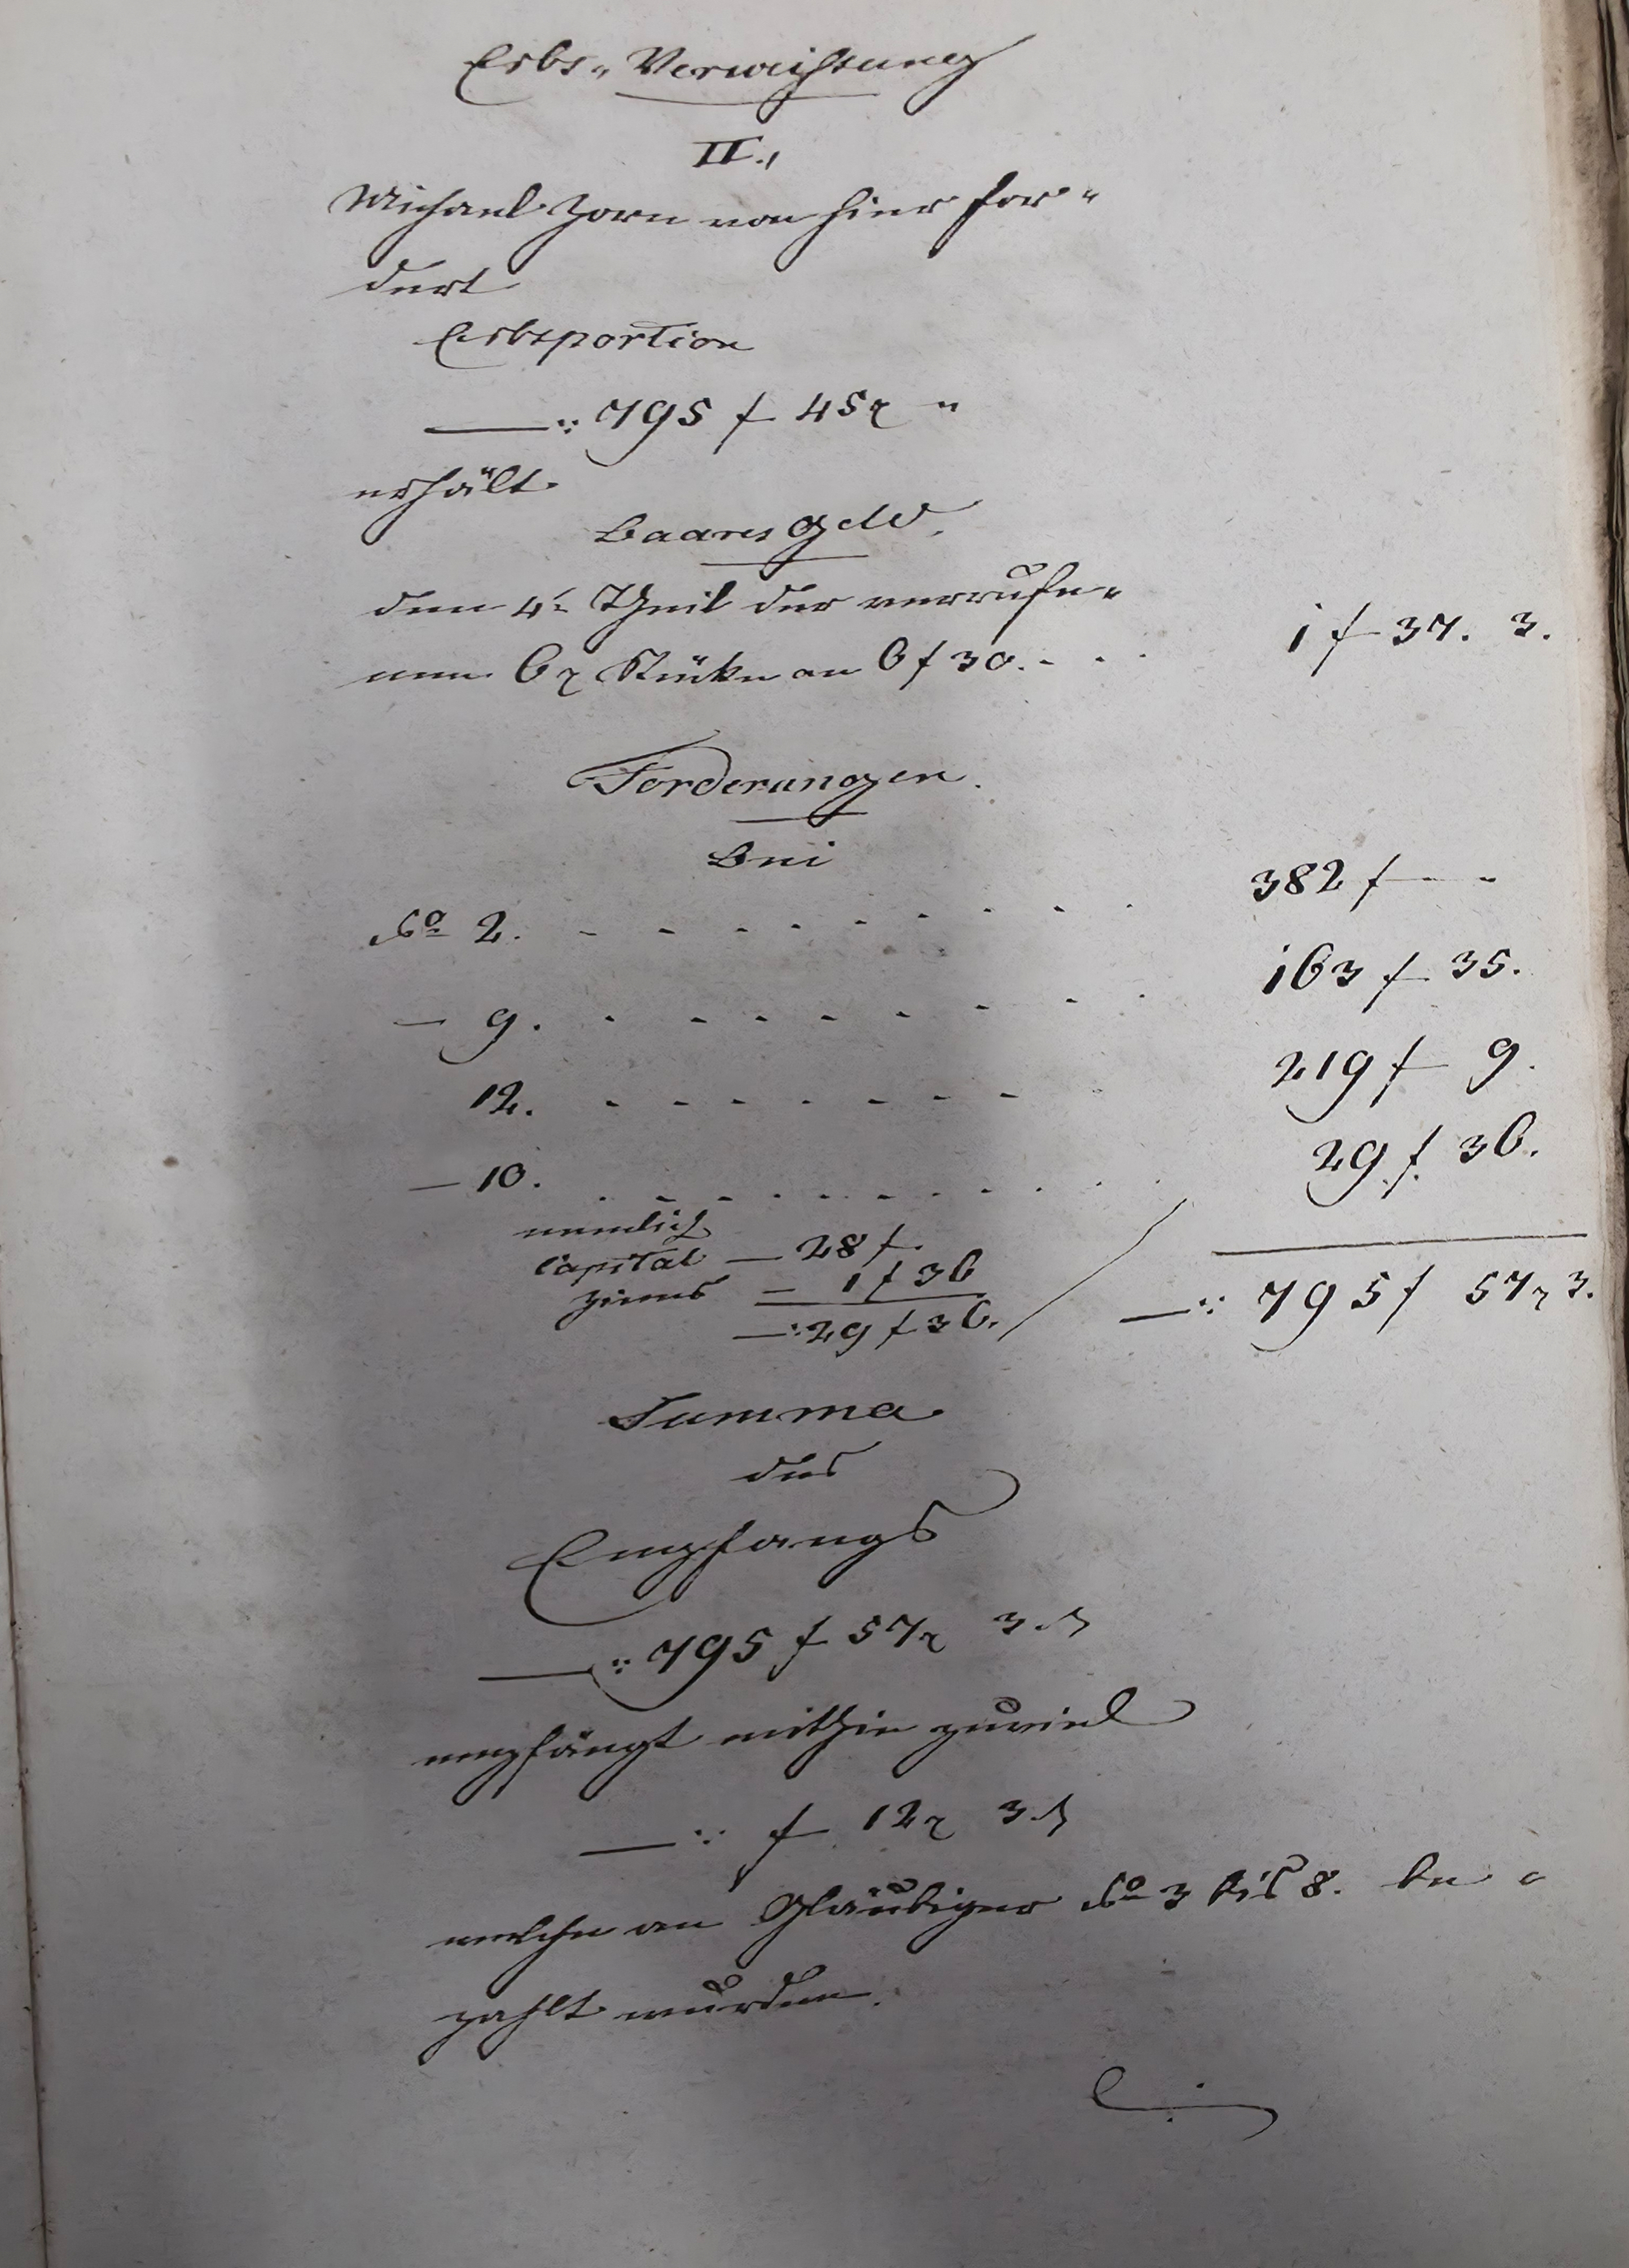 Erbs-Verweisung
II.,
Michael Zorn von hier for-
dert
Erbsportion
—: 795 f 45 x "
erhält
Baares Geld.
den 4t Theil der verrufe-
nen 6 x Stücke an 6 f 30. - - -
1 f 37. 3.
Forderungen.
Bei
No 2. - - - - - - - - - 382 f - -
— 9. - - - - - - - - - 163 f 35.
12. - - - - - - - - 219 f 9.
— 10. - - - - - - - - - 29 f 36.
nemlich
Capital — 28 f.
Zinns — 1 f 36
—: 29 f 36.
—: 795 f 57 x 3.
Summa
des
Empfangs
—: 795 f 57 x 3 ₰
empfängt mithin zuviel
—: f 12 x 3 ₰
welche an Gläubiger No 3 bis 8. be-
zahlt wurden.